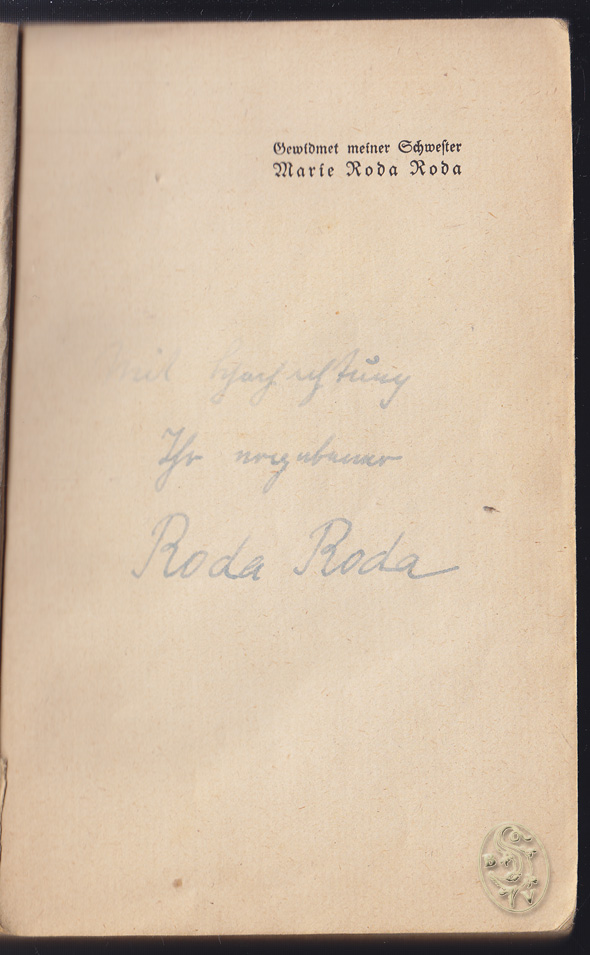 Gewidmet meiner Schwester
Marie Roda Roda
Mit Hochachtung
Ihr ergebener
Roda Roda